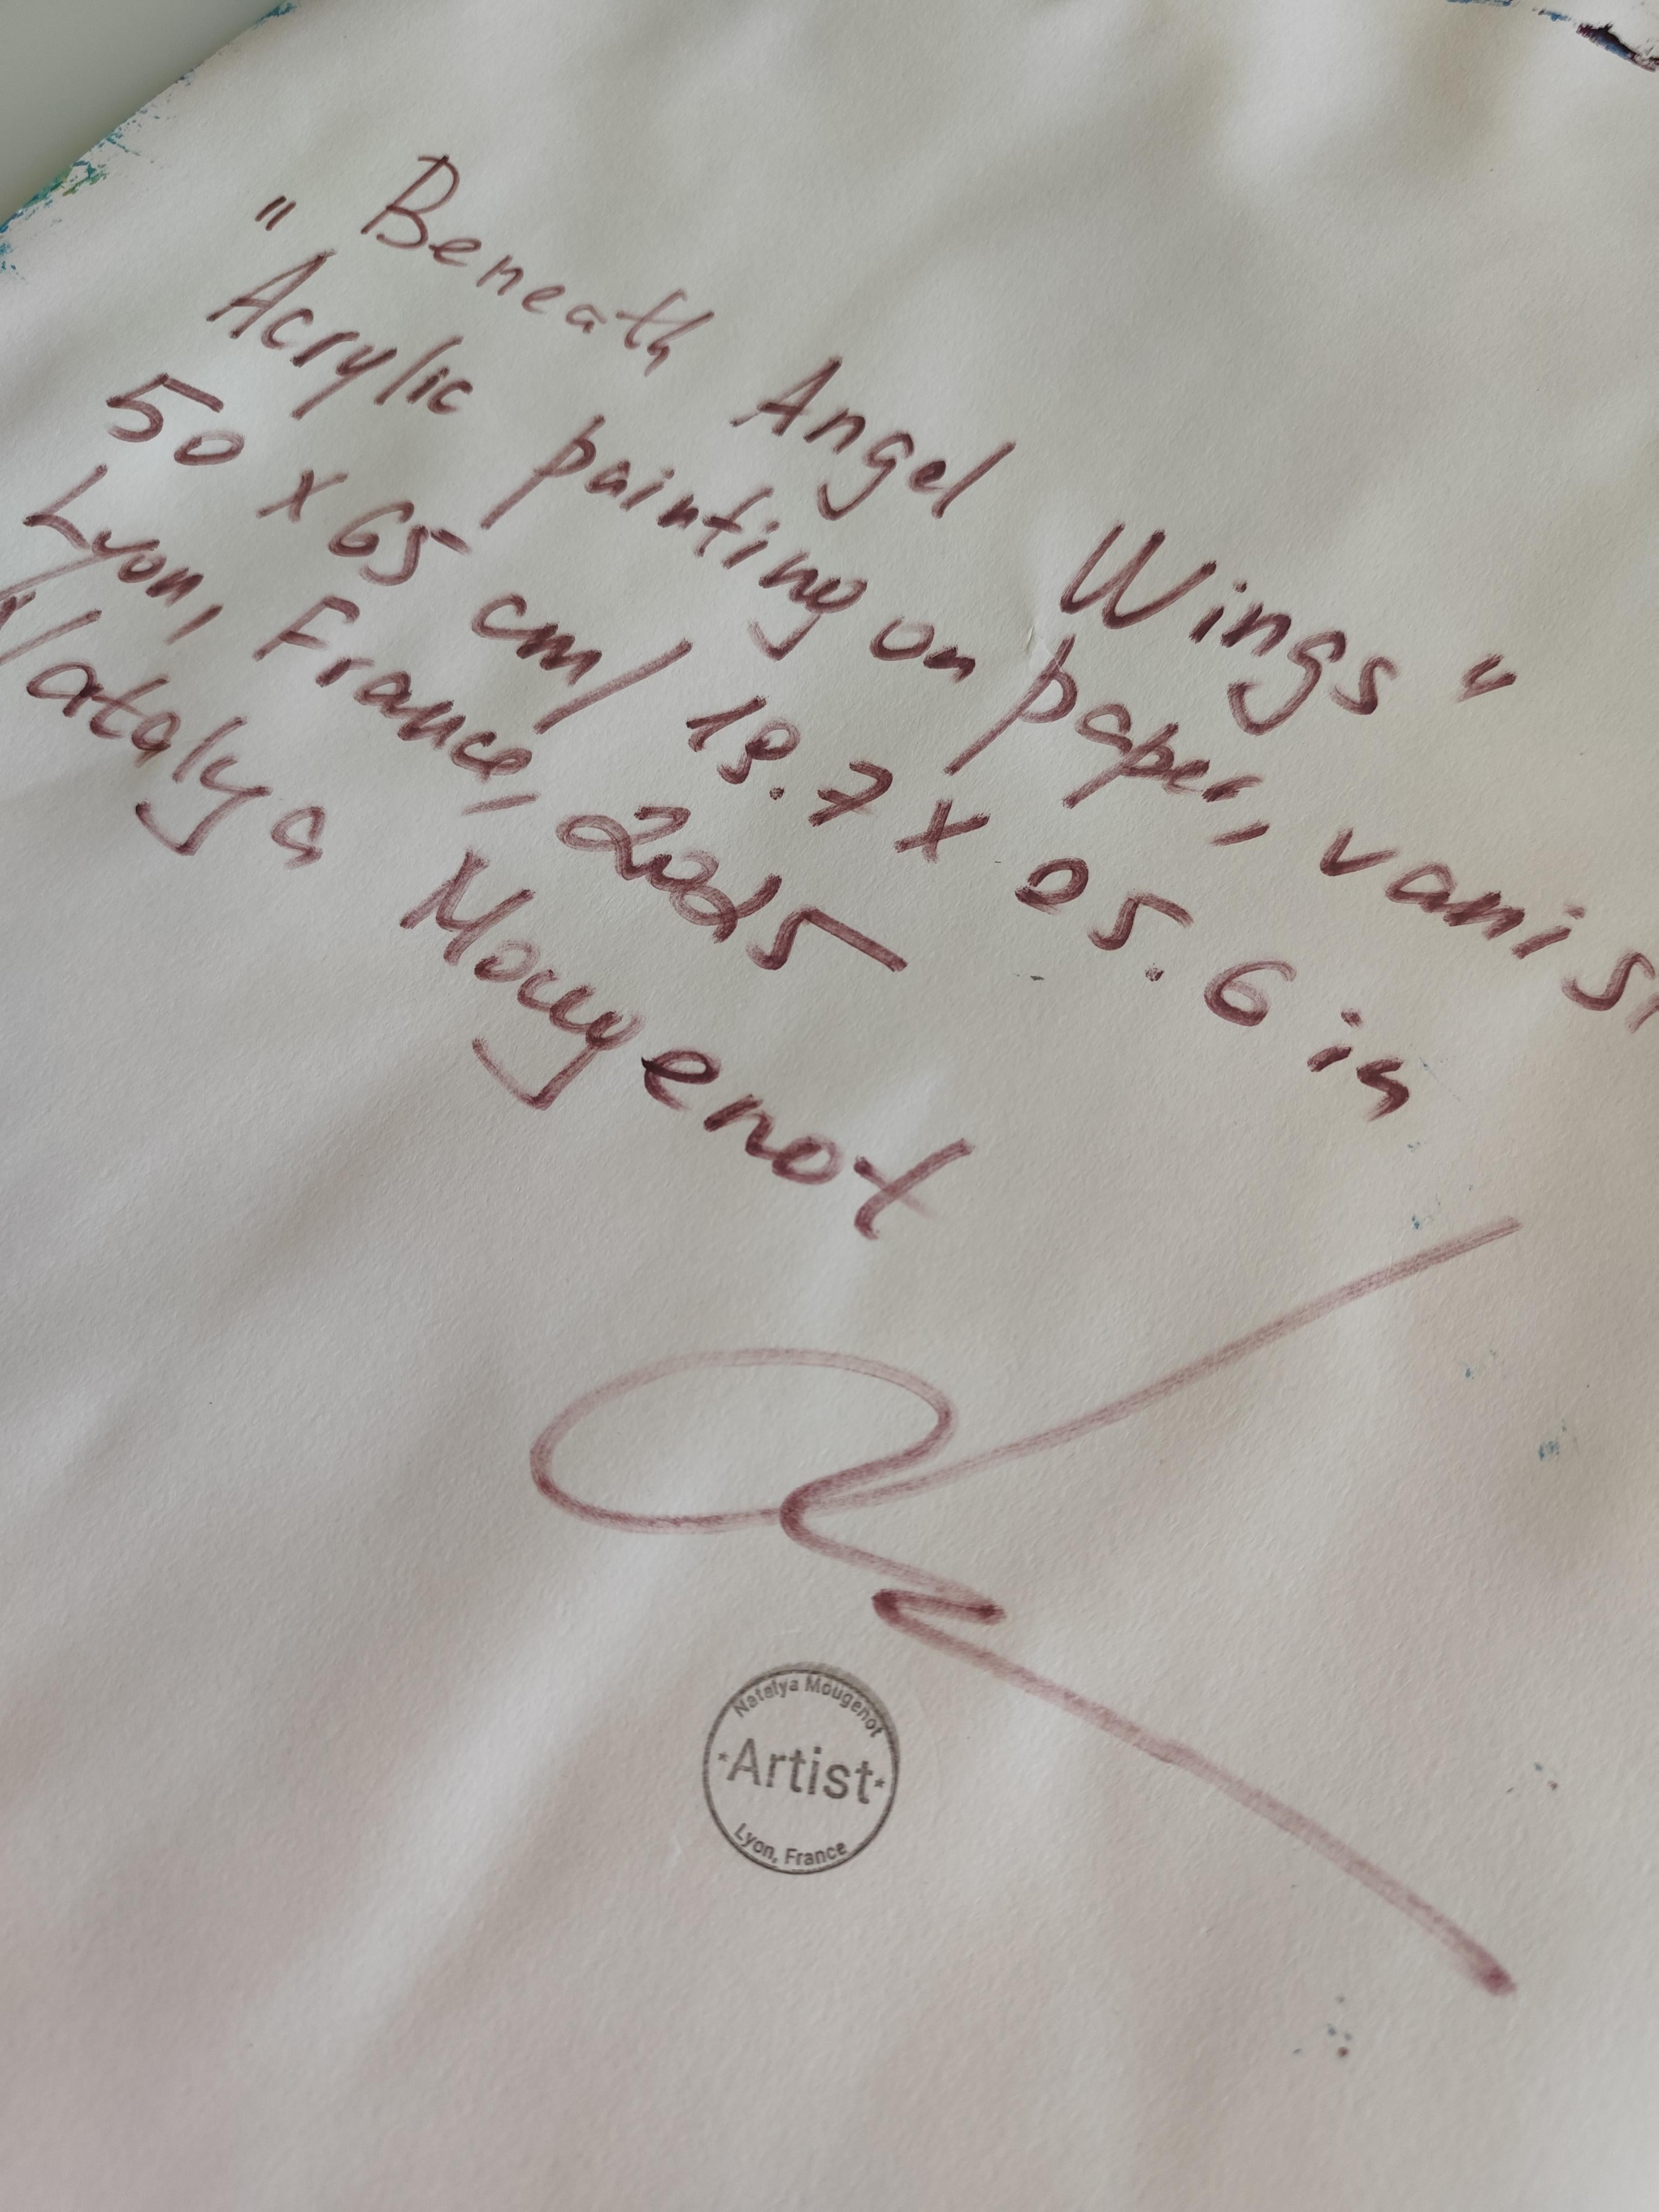 " Beneath Angel Wings "
Acrylic painting on paper, varnis
50 x 65 cm / 19.7 x 25.6 in
Lyon, France, 2025
Natalya Mougenot
Natalya Mougenot
*Artist*
Lyon, France